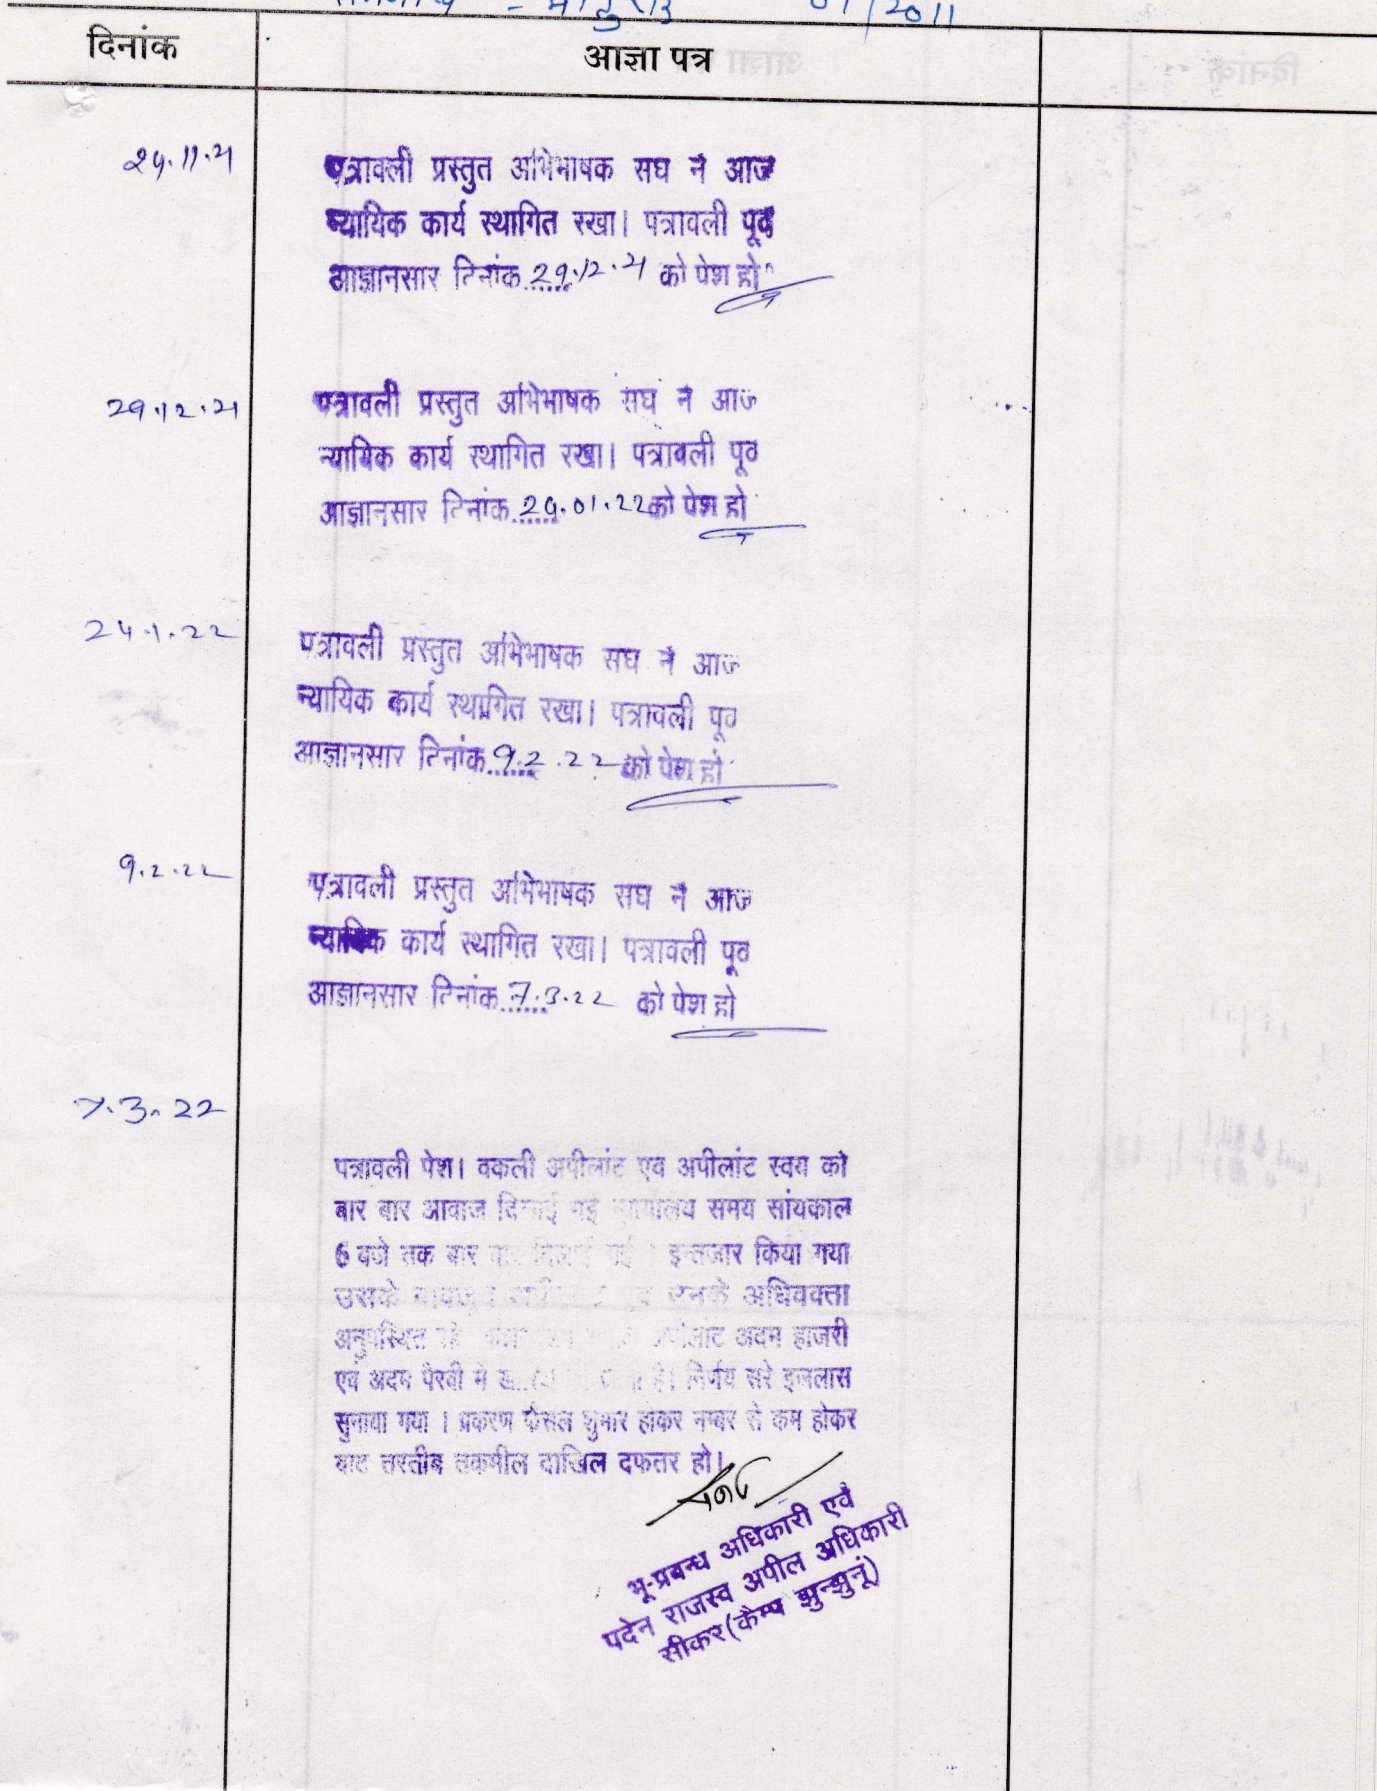 01/2011
दिनांक
आज्ञा पत्र
24.11.21
पत्रावली प्रस्तुत अभिभाषक सघ ने आज
न्यायिक कार्य स्थागित रखा। पत्रावली पूर्व
आज्ञानसार दिनांक 29.12.21 को पेश हो
29.12.21
पत्रावली प्रस्तुत अभिभाषक सघ ने आज
न्यायिक कार्य स्थागित रखा। पत्रावली पूर्व
आज्ञानसार दिनांक 24.01.22 को पेश हो
24.1.22
पत्रावली प्रस्तुत अभिभाषक सघ ने आज
न्यायिक कार्य स्थागित रखा। पत्रावली पूर्व
आज्ञानसार दिनांक 9.2.22 को पेश हो
9.2.22
पत्रावली प्रस्तुत अभिभाषक सघ ने आज
न्यायिक कार्य स्थागित रखा। पत्रावली पूर्व
आज्ञानसार दिनांक 7.3.22 को पेश हो
7.3.22
पत्रावली पेश। वकली अपीलांट एव अपीलांट स्वय को
बार बार आवाज दिलाई गई न्यायालय समय सांयकाल
6 बजे तक बार बार दिलाई गई । इन्तजार किया गया
उसके बावजूद एव उनके अधिवक्ता
अनुपस्थित रहे अपीलाट अदम हाजरी
एवं अदम पैरवी मे है। निर्णय सरे इजलास
सुनाया गया । प्रकरण फैसल शुमार होकर नम्बर से कम होकर
बाद तरतीब तकमील दाखिल दफतर हो।
भू-प्रबन्ध अधिकारी एवं
पदेन राजस्व अपील अधिकारी
सीकर(कैम्प झुन्झुनूं)